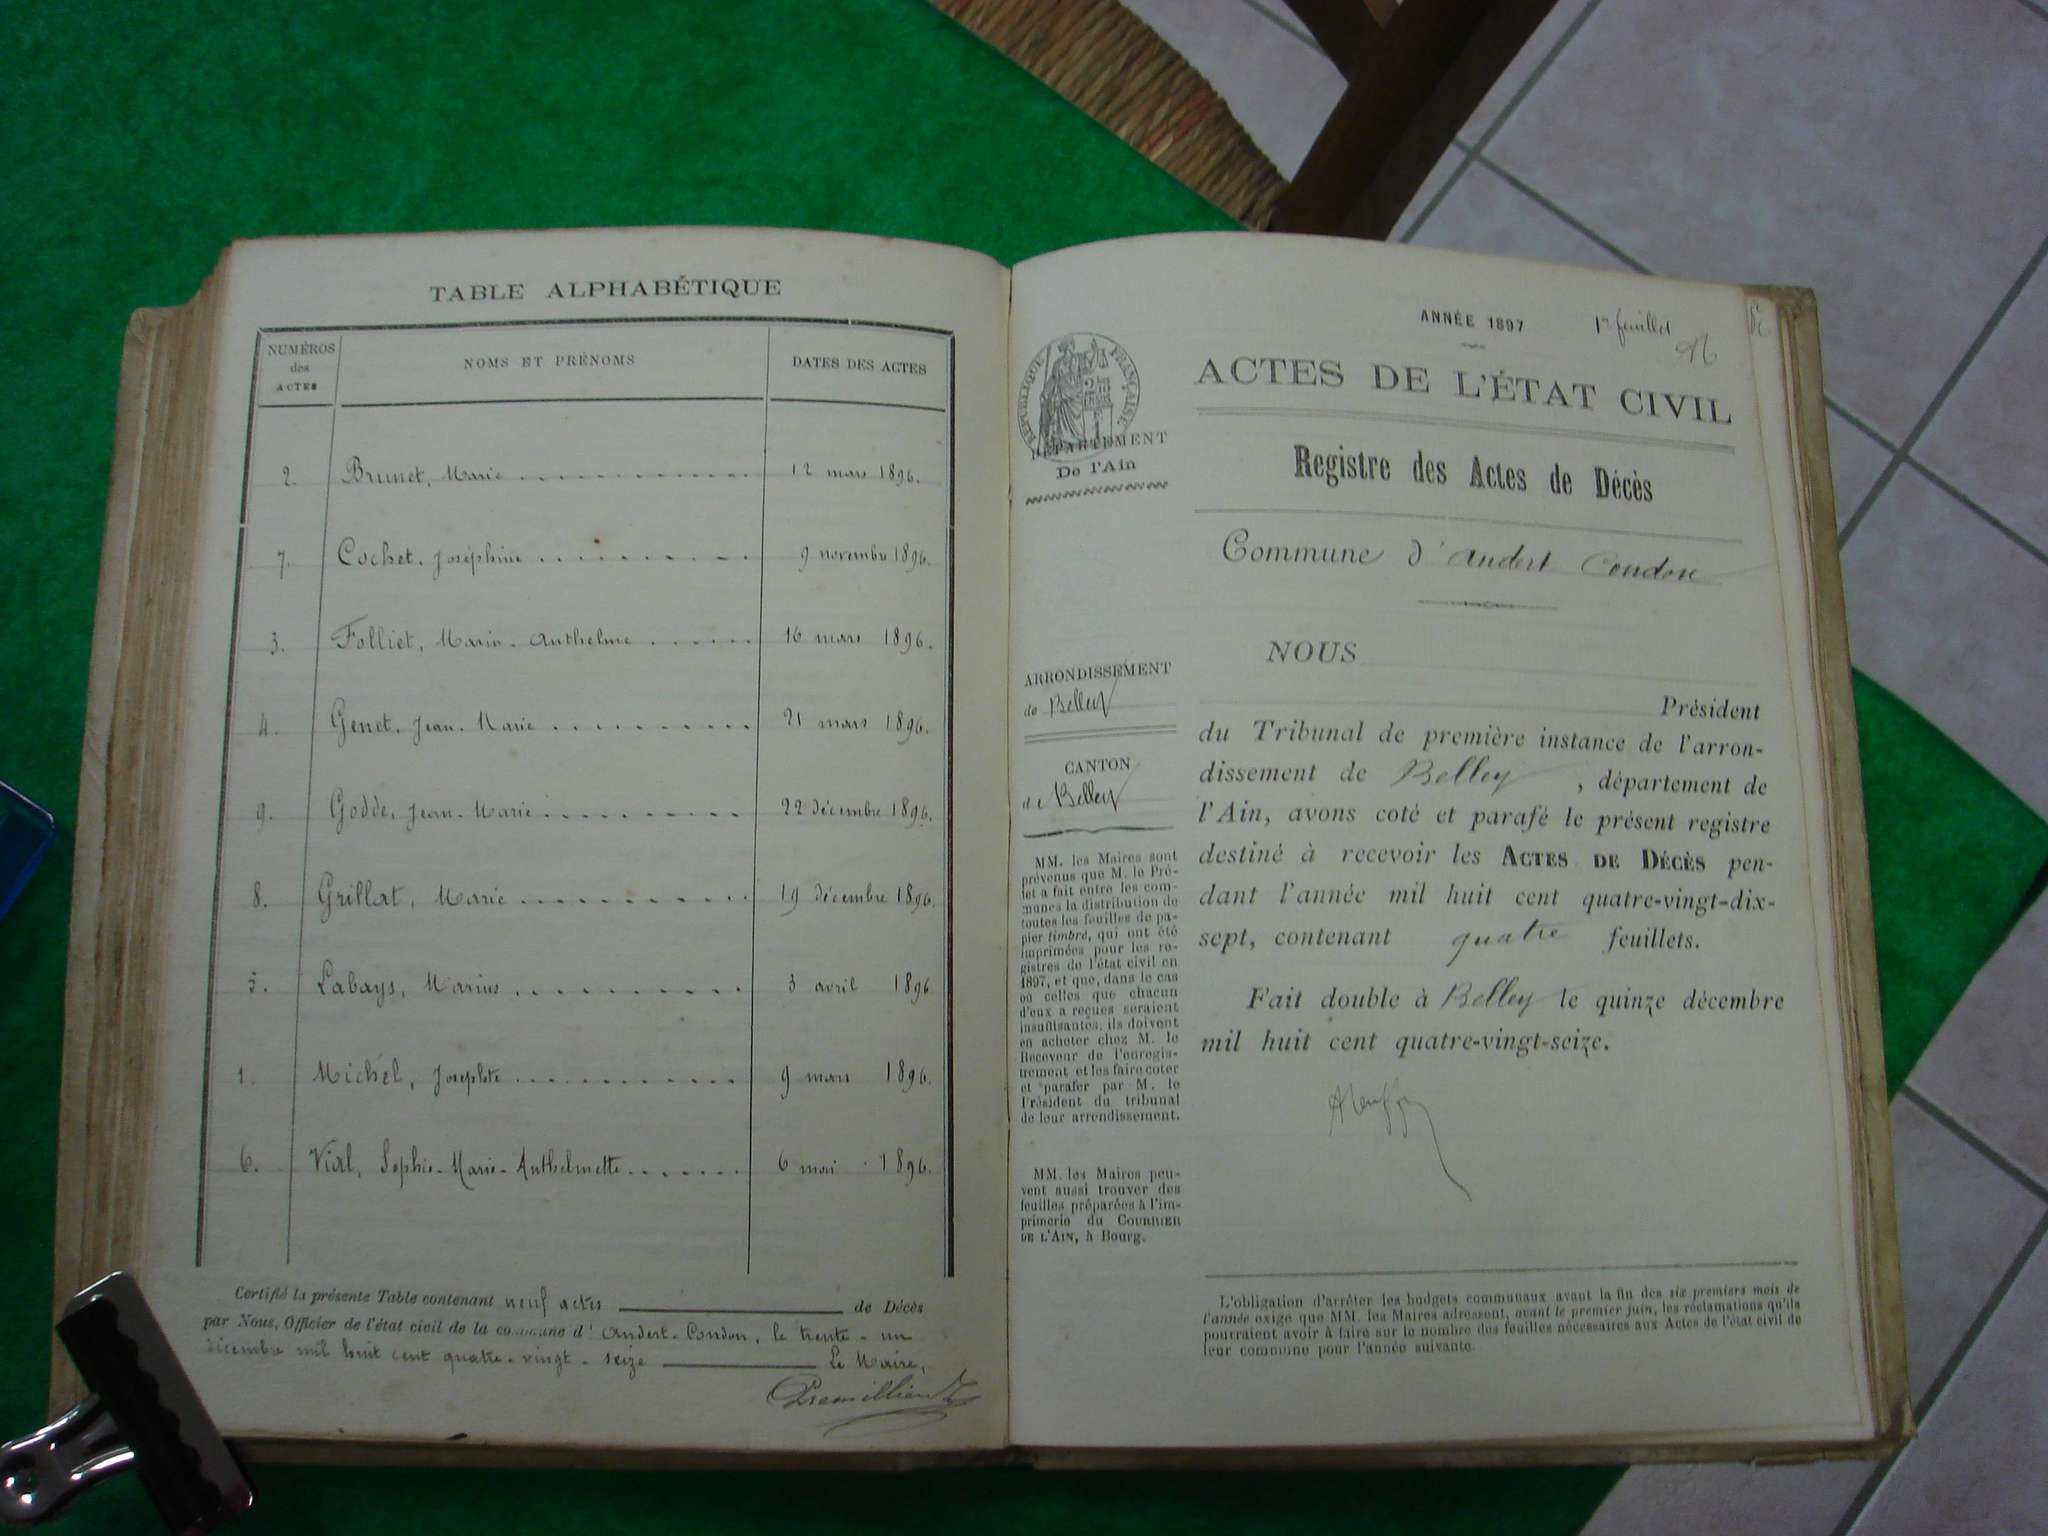 TABLE ALPHABÉTIQUE
NUMÉROS des ACTES
NOMS ET PRÉNOMS
DATES DES ACTES
2. Brunet, Marie 12 mars 1896.
7. Cochet, Joséphine 9 novembre 1896.
3. Folliet, Marin-Anthelme 16 mars 1896.
4. Genet, Jean-Marie 21 mars 1896.
9. Godde, Jean-Marie 22 décembre 1896.
8. Grillat, Marie 19 décembre 1896.
5. Labays, Marius 3 avril 1896
1. Michel, Josephte 9 mars 1896.
6. Vial, Sophie-Marie-Anthelmette 6 mai 1896.
Certifié la présente Table contenant neuf actes de Décès
par Nous, Officier de l'état civil de la commune d'Andert-Condon, le trente-un
décembre mil huit cent quatre-vingt-seize Le Maire,
Premillieu
ANNÉE 1897 1er feuillet
RÉPUBLIQUE FRANÇAISE
ACTES DE L'ÉTAT CIVIL
DÉPARTEMENT
De l'Ain
Registre des Actes de Décès
Commune d'Andert Condon
ARRONDISSEMENT
de Belley
CANTON
de Belley
MM. les Maires sont
prévenus que M. le Pré-
fet a fait entre les com-
munes la distribution de
toutes les feuilles de pa-
pier timbré, qui ont été
imprimées pour les re-
gistres de l'état civil en
1897, et que, dans le cas
où celles que chacun
d'eux a reçues seraient
insuffisantes, ils doivent
en acheter chez M. le
Receveur de l'enregis-
trement et les faire coter
et parafer par M. le
Président du tribunal
de leur arrondissement.
MM. les Maires peu-
vent aussi trouver des
feuilles préparées à l'im-
primerie du COURRIER
DE L'AIN, à Bourg.
NOUS
Président
du Tribunal de première instance de l'arron-
dissement de Belley, département de
l'Ain, avons coté et parafé le présent registre
destiné à recevoir les ACTES DE DÉCÈS pen-
dant l'année mil huit cent quatre-vingt-dix-
sept, contenant quatre feuillets.
Fait double à Belley le quinze décembre
mil huit cent quatre-vingt-seize.
L'obligation d'arrêter les budgets communaux avant la fin des six premiers mois de
l'année exige que MM. les Maires adressent, avant le premier juin, les réclamations qu'ils
pourraient avoir à faire sur le nombre des feuilles nécessaires aux Actes de l'état civil de
leur commune pour l'année suivante.